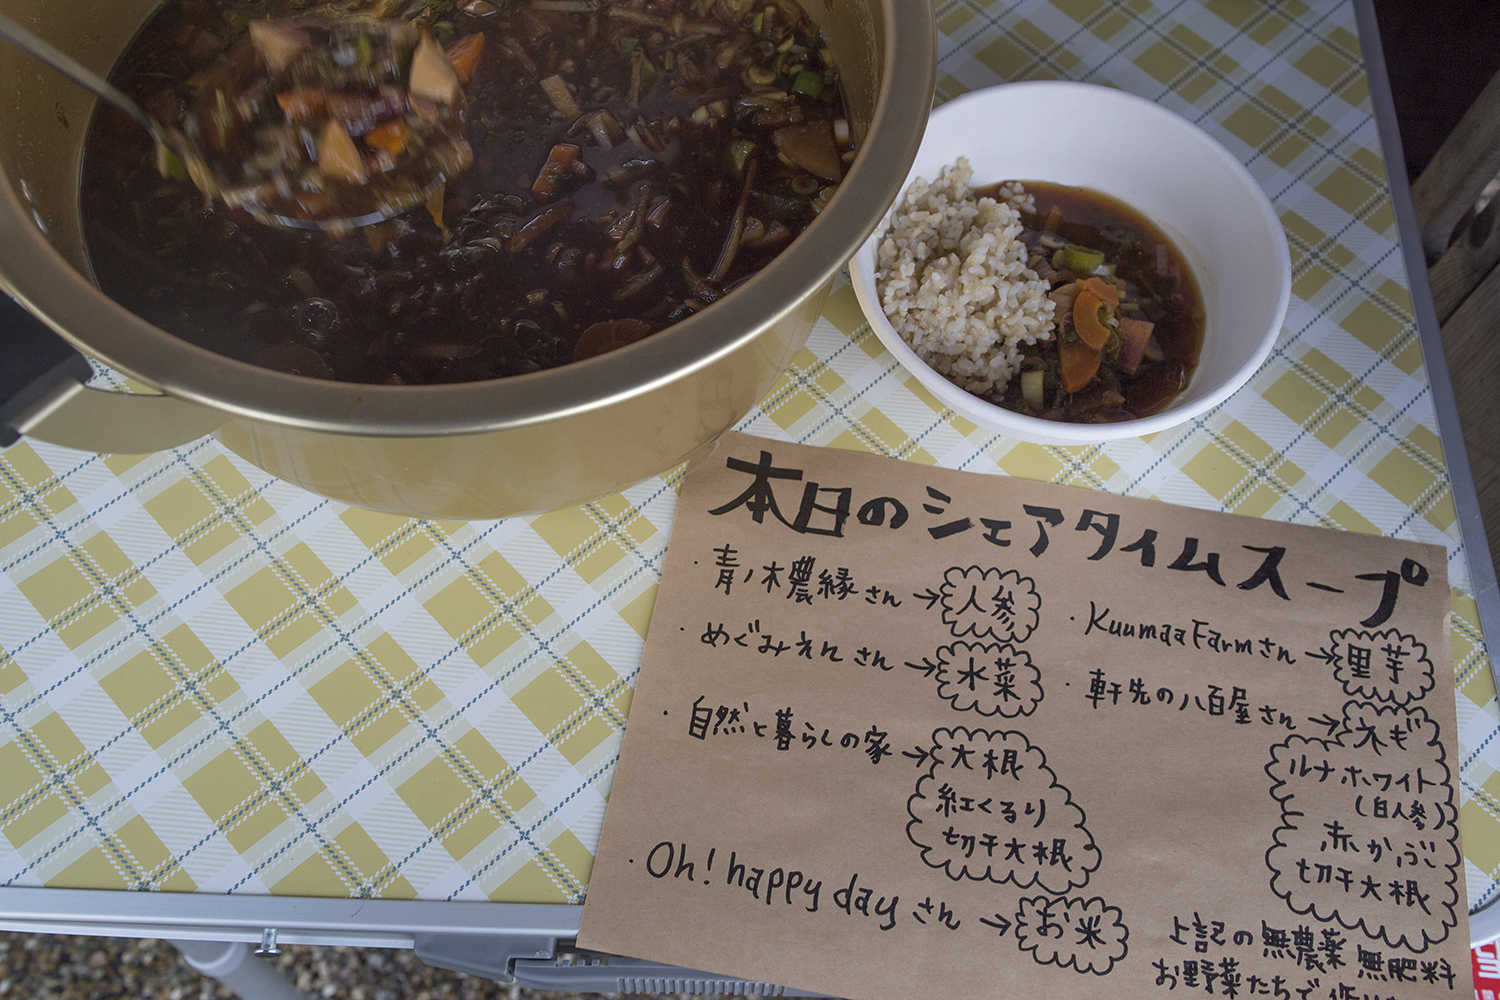 本日のシェアタイムスープ
・青ノ木農縁さん→人参
・めぐみえんさん→水菜
・自然と暮らしの家→大根
紅くるり
切干大根
・Oh! happy dayさん→お米
・Kuumaa Farmさん→里芋
・軒先の八百屋さん→ネギ
ルナホワイト
(白人参)
赤かぶ
切干大根
上記の無農薬 無肥料
お野菜たちで